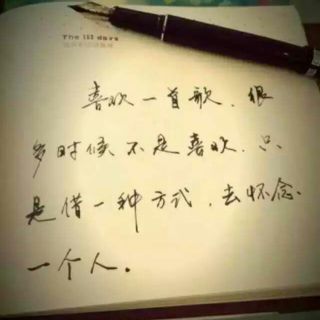 The 112 days
喜欢一首歌，很
多时候不是喜欢，只
是借一种方式，去怀念
一个人。